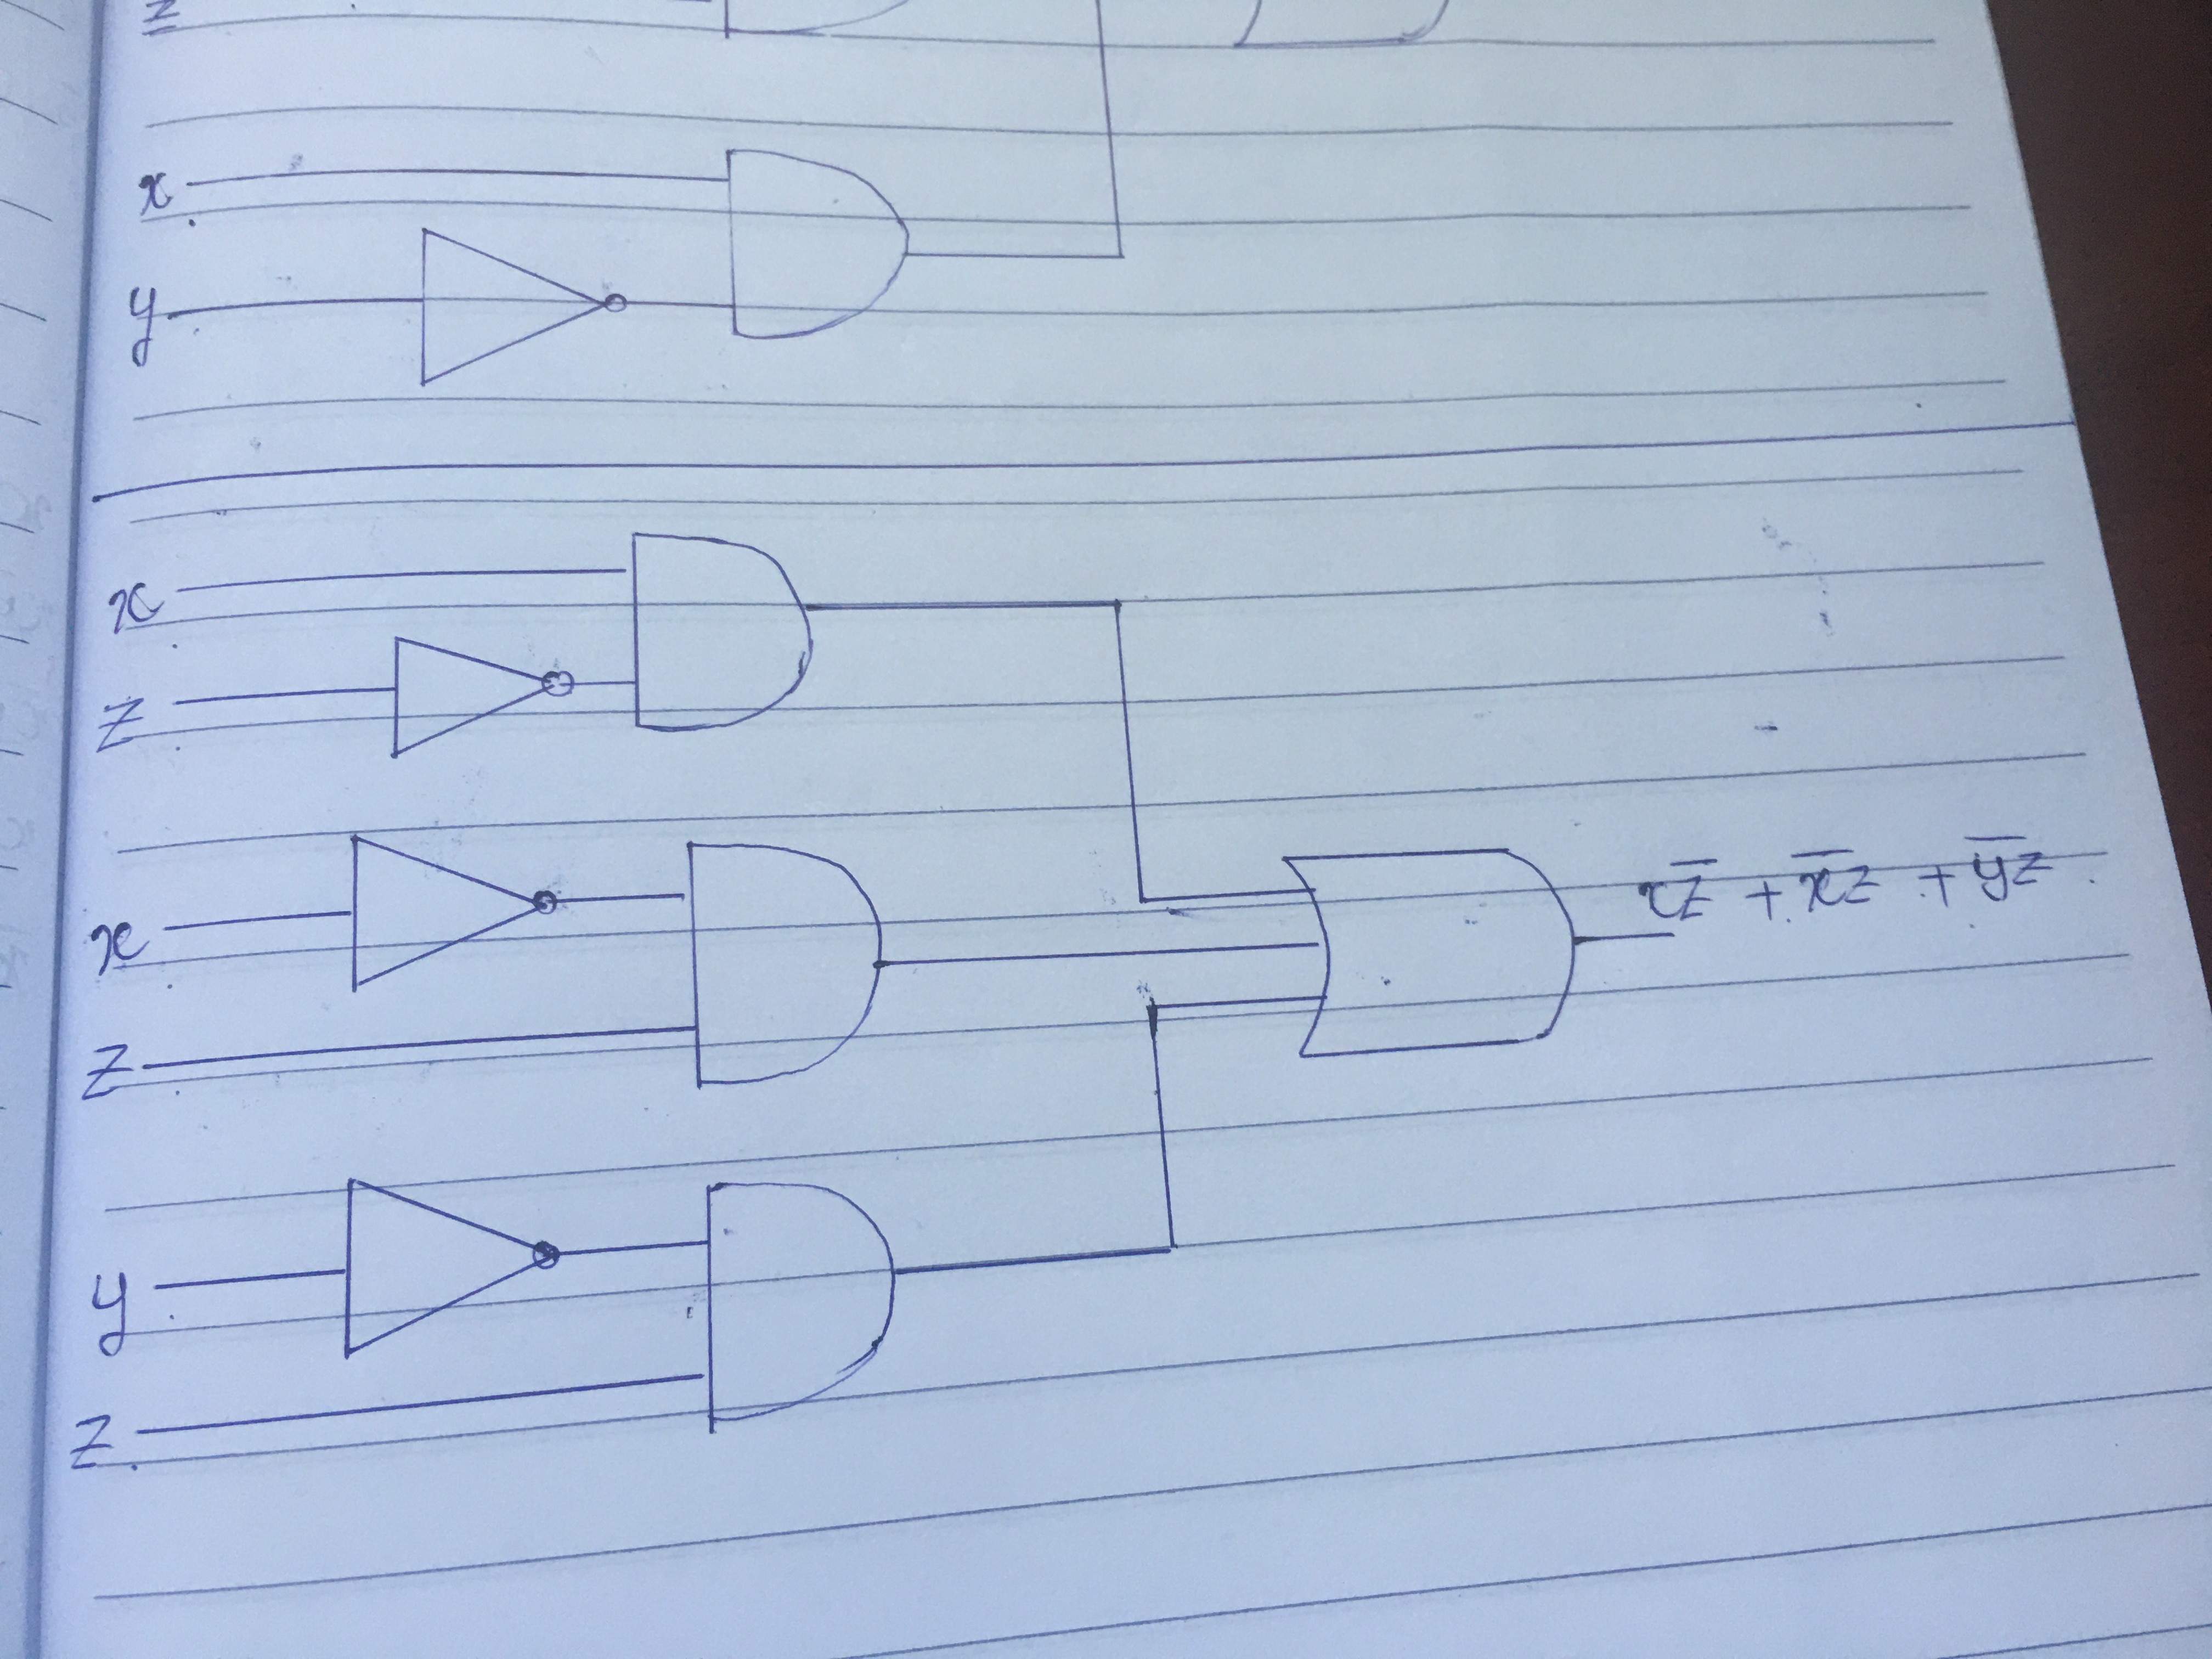 z
x
y
x
z
xz̅ + x̅z + y̅z
x
z
y
z